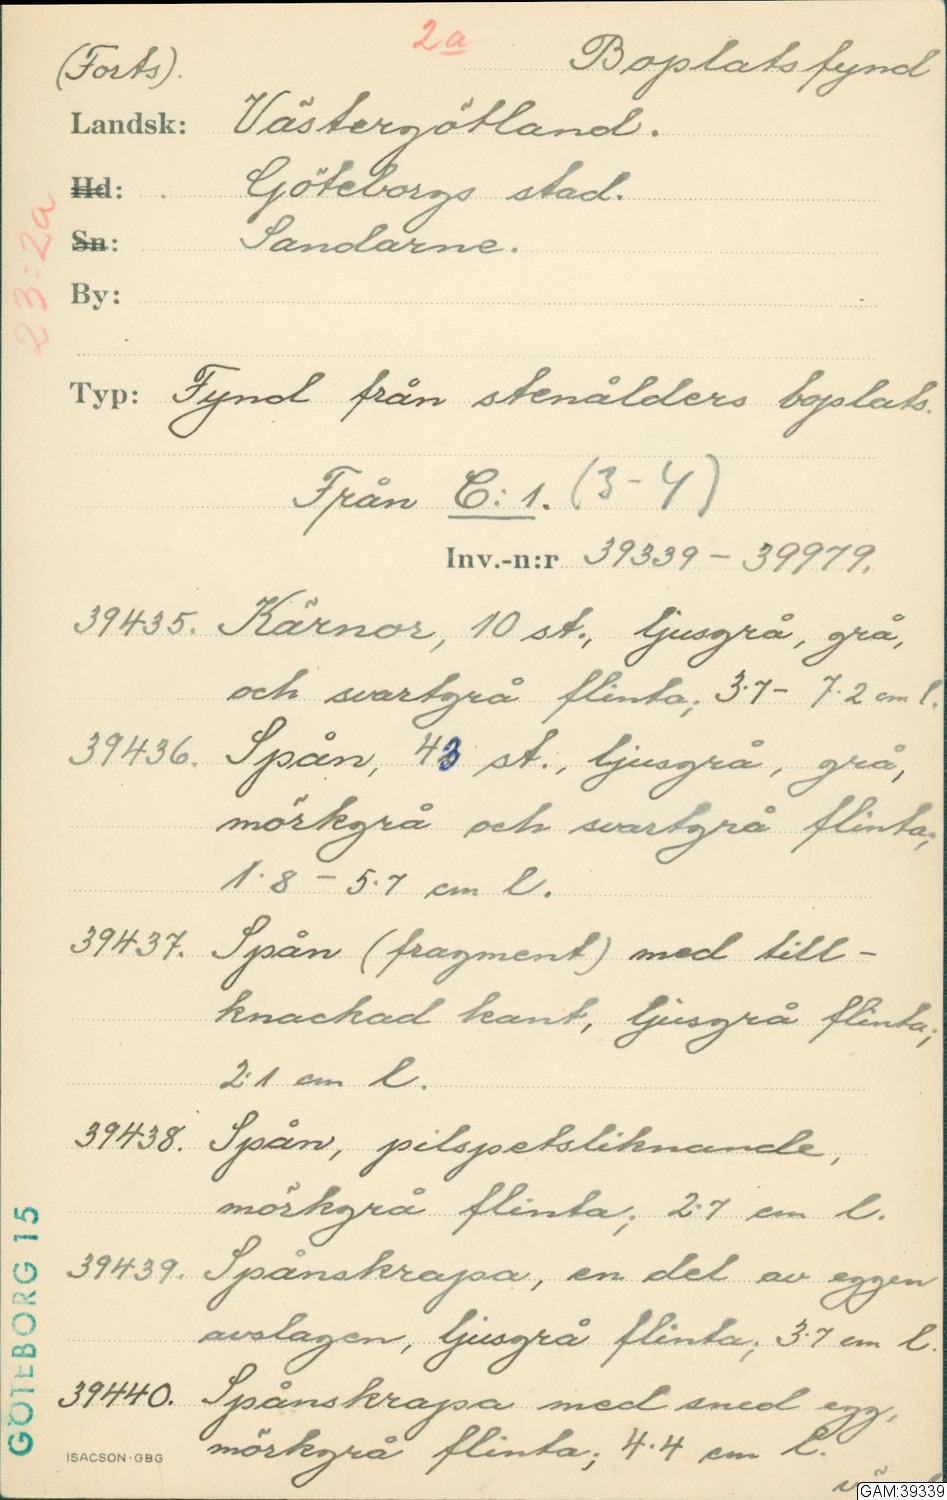 2a
(Forts). Boplatsfynd
Landsk: Västergötland.
Hd: Göteborgs stad.
Sn: Sandarne.
By:
23:2a
Typ: Fynd från stenålders boplats.
Från C:1. (3-4)
Inv.-n:r 39339 – 39979.
39435. Kärnor, 10 st., ljusgrå, grå,
och svartgrå flinta; 3.7 – 7.2 cm l.
39436. Spån, 43 st., ljusgrå, grå,
mörkgrå och svartgrå flinta;
1.8 – 5.7 cm l.
39437. Spån (fragment) med till-
knackad kant, ljusgrå flinta;
2.1 cm l.
39438. Spån, pilspetsliknande,
mörkgrå flinta; 2.7 cm l.
39439. Spånskrapa, en del av eggen
avslagen, ljusgrå flinta; 3.7 cm l.
39440. Spånskrapa med sned egg,
mörkgrå flinta; 4.4 cm l.
GÖTEBORG 15
ISACSON-GBG
GAM:39339